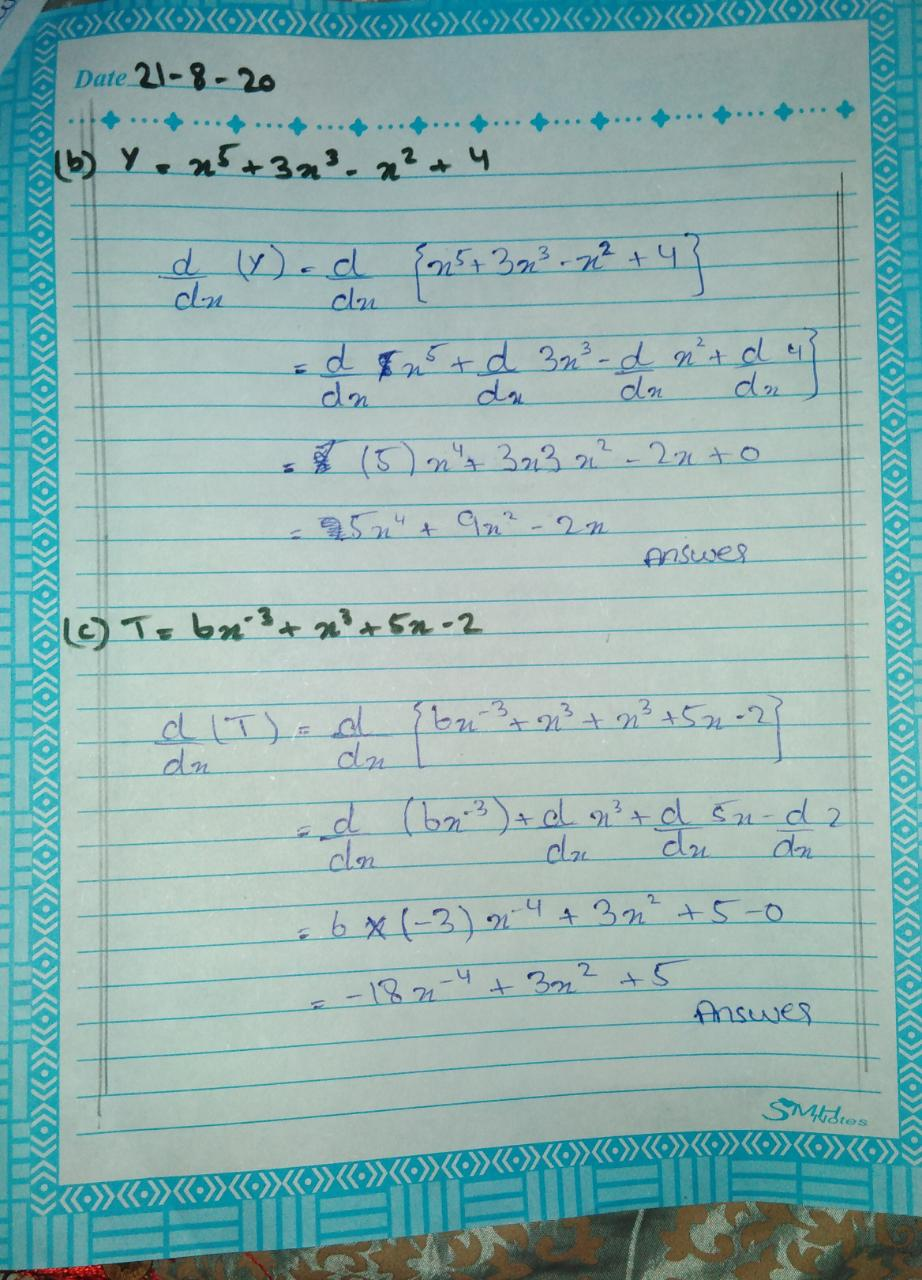 Date 21-8-20
(b) Y = x⁵ + 3x³ - x² + 4
d/dx (Y) = d/dx {x⁵ + 3x³ - x² + 4}
= d/dx x⁵ + d/dx 3x³ - d/dx x² + d/dx 4}
= (5) x⁴ + 3x3 x² - 2x + 0
= 5x⁴ + 9x² - 2x
Answer
(c) T = 6x⁻³ + x³ + 5x - 2
d/dx (T) = d/dx {6x⁻³ + x³ + x³ + 5x - 2}
= d/dx (6x⁻³) + d/dx x³ + d/dx 5x - d/dx 2
= 6 x (-3) x⁻⁴ + 3x² + 5 - 0
= -18x⁻⁴ + 3x² + 5
Answer